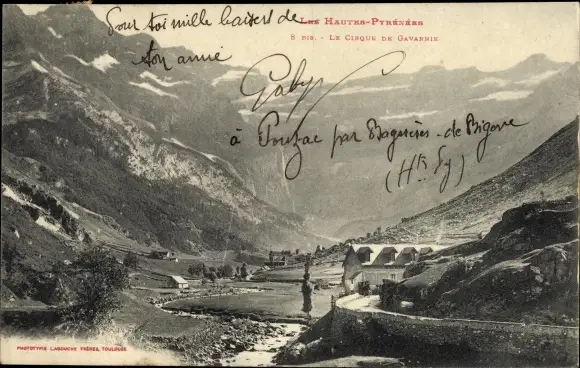 Les Hautes-Pyrénées
8 bis. - Le Cirque de Gavarnie
Pour toi mille baisers de
ton amie
Gaby
à Pouzac par Bagnères-de-Bigorre
(Htes Py)
PHOTOTYPIE LABOUCHE FRÈRES, TOULOUSE